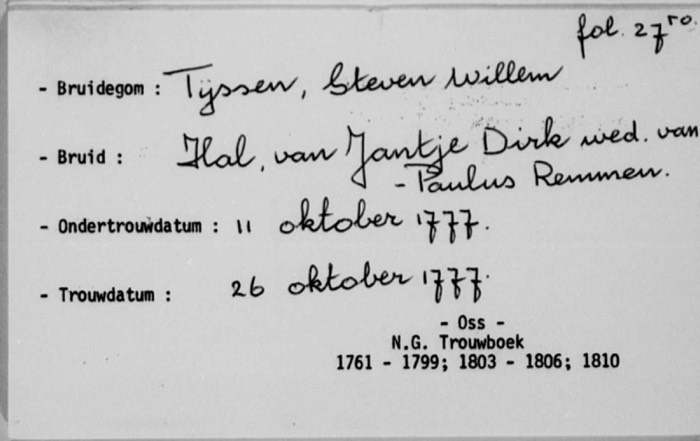 fol. 27ro.
- Bruidegom : Tijssen, Steven Willem
- Bruid : Hal, van Jantje Dirk wed. van
- Paulus Remmen.
- Ondertrouwdatum : 11 oktober 1777.
- Trouwdatum : 26 oktober 1777.
- Oss -
N.G. Trouwboek
1761 - 1799; 1803 - 1806; 1810